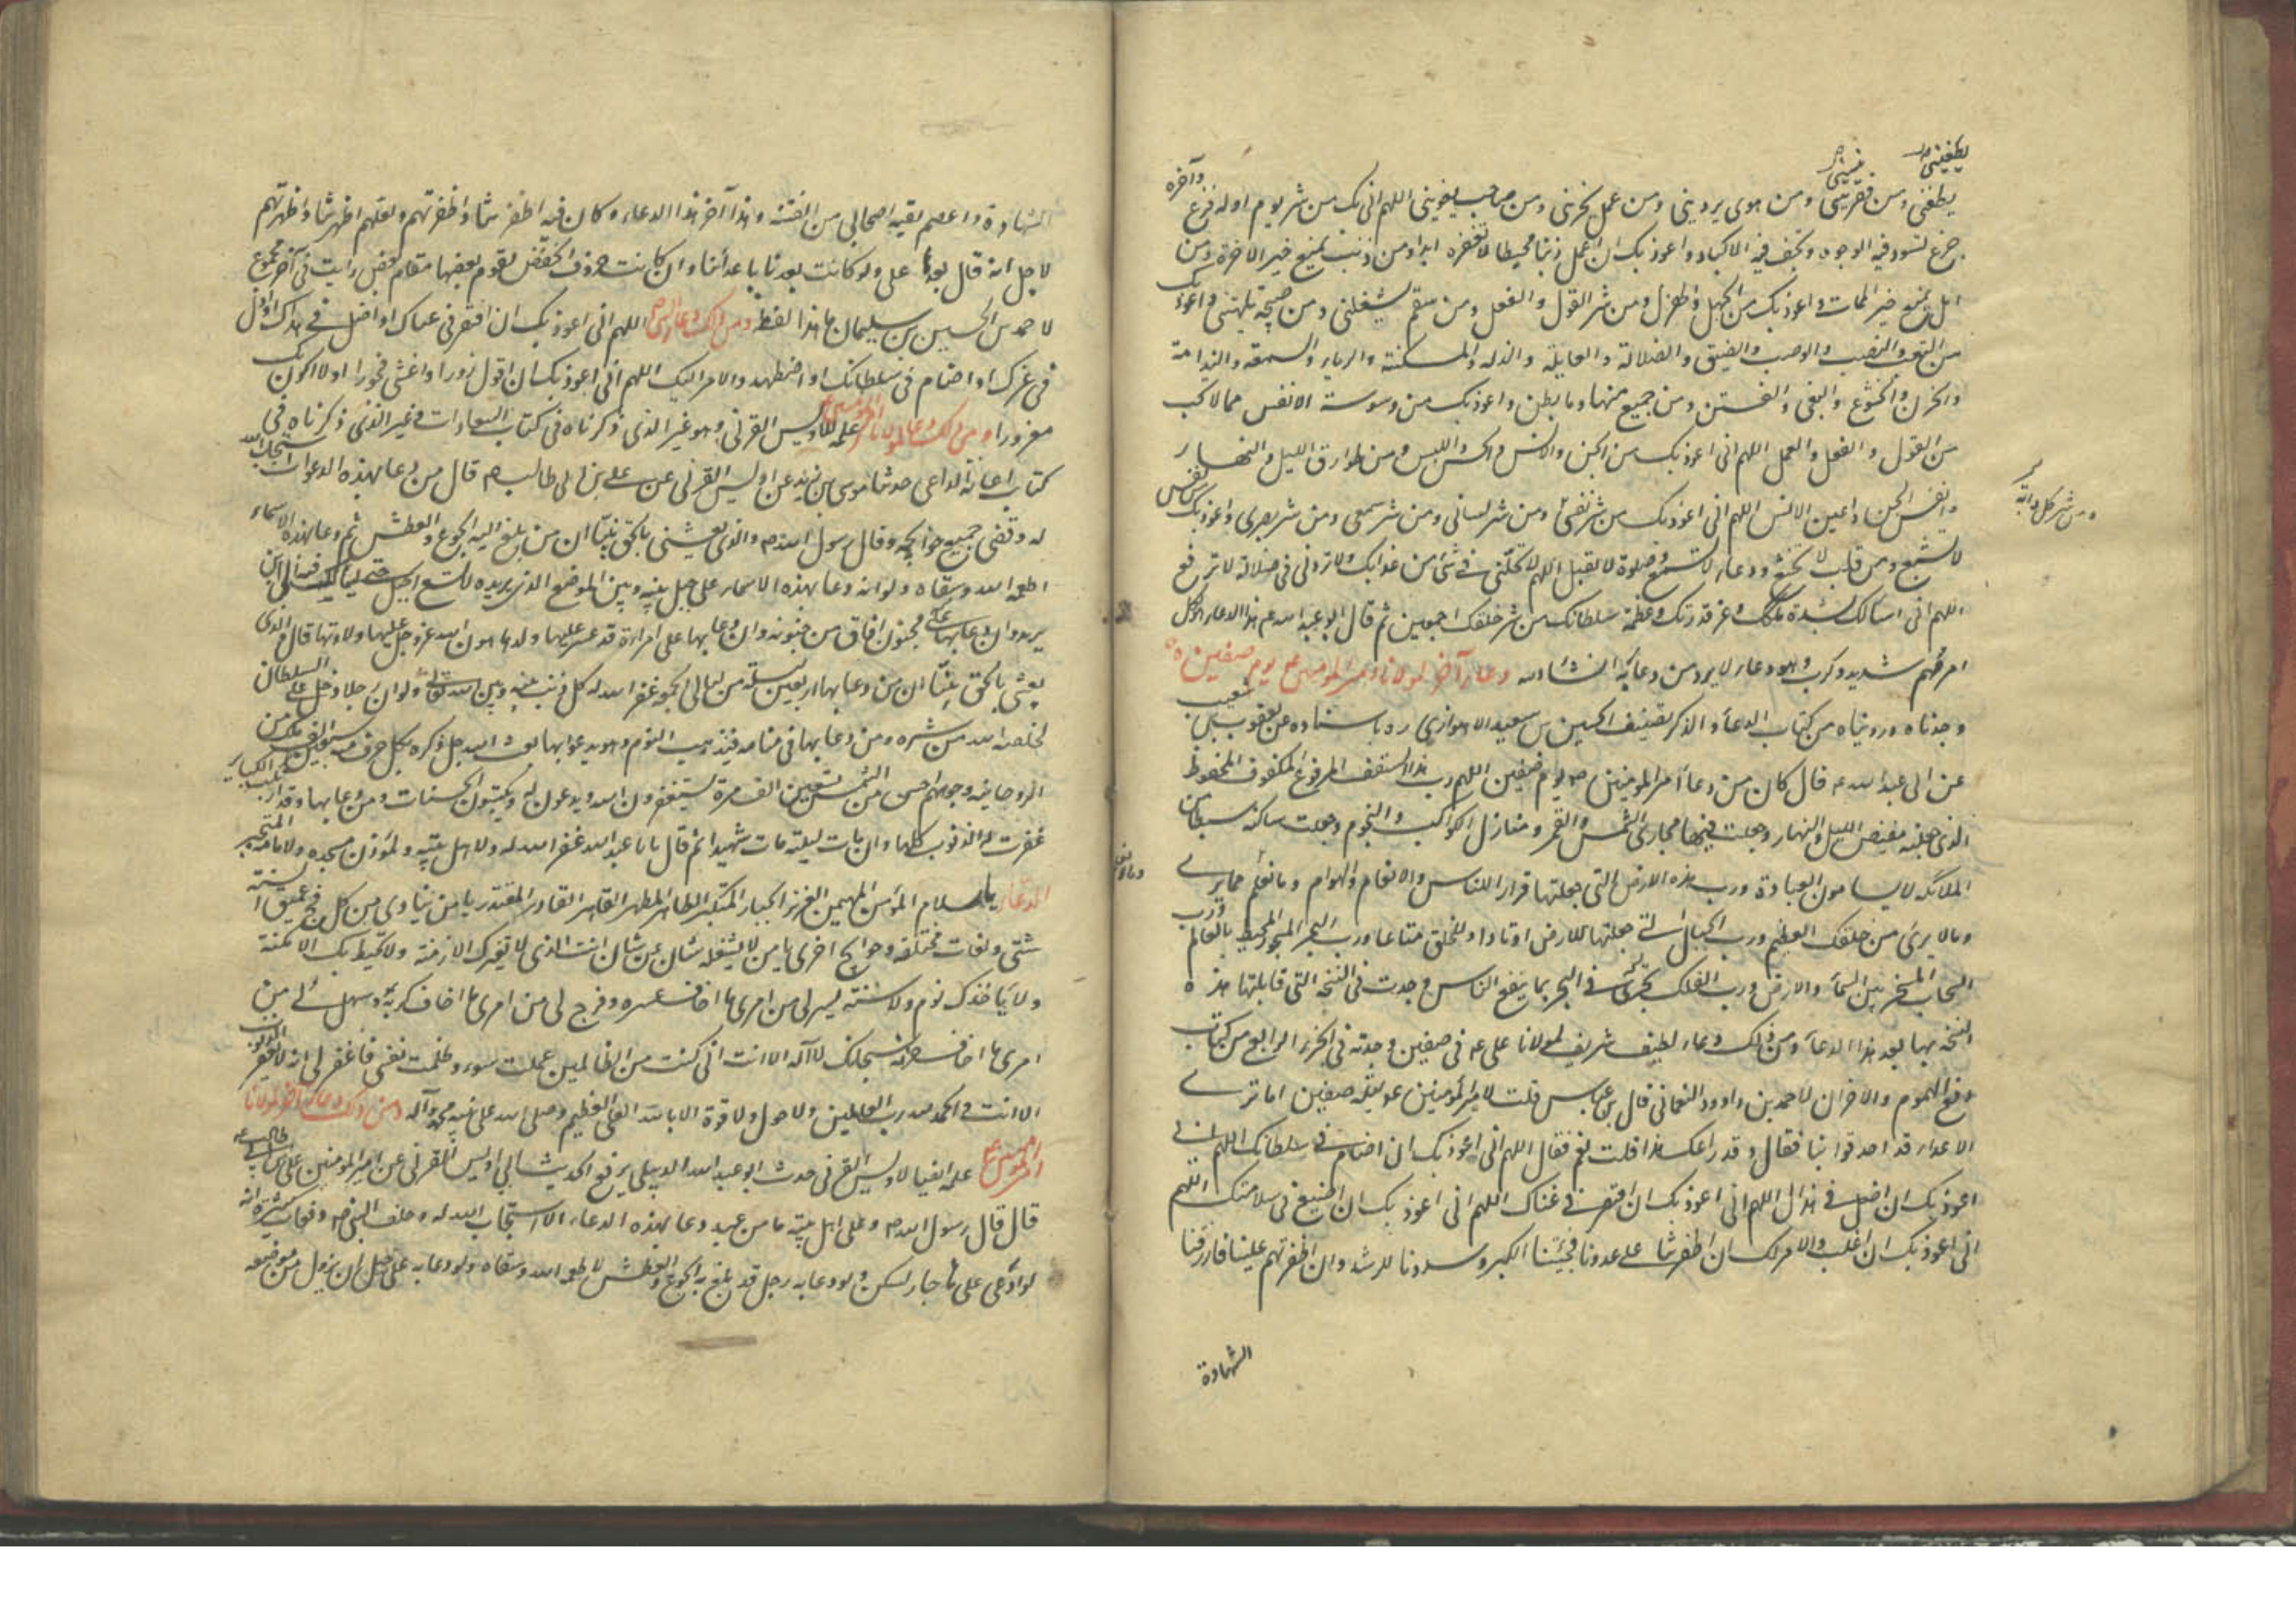 يطغينى
ينسينى
وآخره
يطغنى ومن فقر ينسى ومن هوى يردينى ومن عمل يخزينى ومن صاحب يغوينى اللهم انى بك من شر يوم اوله فزع
جزع تسود فيه الوجوه وتجف فيه الاكباد واعوذ بك ان اعمل ذنبا محبطا لا تغفره ابدا ومن ذنب يمنع خير الاخرة ومن
امل يمنع خير الممات واعوذ بك من الجهل والهزل ومن شر القول والفعل ومن سقم يشغلنى ومن صحة تلهينى واعوذ بك
من التعب والنصب والوصب والضيق والضلالة والعايلة والذلة والمسكنة والرياء والسمعة والندامة
والحزن والخشوع والبغى والفتن ومن جميع منها وما بطن واعوذ بك من وسوسة الانفس مما لا تحب
من القول والفعل والعمل اللهم انى اعوذ بك من الجن والانس والحس واللبس ومن طوارق الليل والنهار
وانفس الجن واعين الانس اللهم انى اعوذ بك من شر نفسى ومن شر لسانى ومن شر سمعى ومن شر بصرى واعوذ بك من نفس
ومن شر كل دابة
لا تشبع ومن قلب لا يخشع ودعاء لا يسمع وصلوة لا تقبل اللهم لا تجعلنى فى شئ من عذابك ولا تردنى فى ضلالة لا ترفع
اللهم انى اسالك بشدة ملكك وعز قدرتك وعظمة سلطانك من شر خلقك اجمعين ثم قال ابو عبد الله عم هذا الدعاء لكل
امر مهم شديد وكرب وهو دعاء لا يرد من دعا به انشاء الله دعاء آخر لمولانا امير المومنين عم يوم صفين
وجدناه وروّيناه من كتاب الدعاء والذكر تصنيف الحسين بن سعيد الاهوازى ره باسناده عن يعقوب بن شعيب
عن ابى عبد الله عم قال كان من دعاء امير المومنين ص يوم صفين اللهم رب هذا السقف المرفوع المكفوف المحفوظ
الذى جعلته مغيض الليل والنهار وجعلت فيها مجارى الشمس والقمر ومنازل الكواكب والنجوم وجعلت ساكنه سبطا من
الملائكة لا يسامون العبادة ورب هذه الارض التى جعلتها قرارا للناس والانعام والهوام وما نعلم مما يرى
وما لا يرى من خلقك العظيم ورب الجبال التى جعلتها للارض اوتادا وللخلق متاعا ورب البحر المسجور المحيط بالعالم ورب
السحاب المسخر بين السماء والارض ورب الفلك تجرى فى البحر بما ينفع الناس وجدت فى النسخة التى قابلتها هذه
النسخة بها بعد هذا الدعاء ومن ذلك دعاء لطيف شريف لمولانا على عم فى صفين وجدته فى الجزء الرابع من كتاب
دفع الهموم والاحزان لاحمد بن داوود النعمانى قال ابن عباس قلت لامير المؤمنين عم ليلة صفين اما ترى
الاعداء قد احدقوا بنا فقال وقد راعك هذا قلت نعم فقال اللهم انى اعوذ بك ان اضام فى سلطانك اللهم انى
اعوذ بك ان اضل فى هداك اللهم انى اعوذ بك ان افتقر فى غناك اللهم انى اعوذ بك ان اضيع فى سلامتك اللهم
انى اعوذ بك ان اغلب والامر لك ان اظفرتنا على عدونا فجنبنا الكبر وسددنا للرشد وان اظفرتهم علينا فارزقنا
الشهادة
الشهادة واعصم بقية اصحابى من الفتنة وهذا آخر هذا الدعاء وكان فيه اظفرتنا واظفرتهم ولعلهم اظهرتنا واظهرتهم
لاجل انه قال بعدها على ولو كانت بعدنا باعدائنا وان كانت حروف الخفض يقوم بعضها مقام بعض رايت فى آخر مجموع
لاحمد بن الحسين بن سليمان ما هذا لفظه ومن ذلك دعاء اللهم انى اعوذ بك ان افتقر فى غناك او اضل فى هداك او اذل
فى عزك او اضام فى سلطانك او اضطهد والامر اليك اللهم انى اعوذ بك ان اقول زورا او اغشى فجورا او لا اكون بك
مغرورا ومن ذلك دعاء لمولانا امير المومنين عم علمه لاويس القرنى وهو غير الذى ذكرناه فى كتاب السعادات وغير الذى ذكرناه فى
كتاب اغاثة الداعى حدثنا موسى بن زيد عن اويس القرنى عن على بن ابى طالب عم قال من دعا بهذه الدعوات استجاب الله
له وقضى جميع حوائجه وقال رسول الله ص والذى بعثنى بالحق نبيّا ان من بلغ اليه الجوع والعطش ثم دعا بهذه الاسماء
اطعمه الله وسقاه ولو انه دعا بهذه الاسماء على جبل بينه وبين الموضع الذى يريده لاتسع الجبل حتى يسلك فيه الى اين
يريد وان دعا بها على مجنون افاق من جنونه وان دعا بها على امراءة قد عسر عليها ولدها هون الله عز وجل عليها ولادتها قال والذى
بعثنى بالحق نبيّا ان من دعا بها اربعين ليلة من ليالى الجمع غفر الله له كل ذنب بينه وبين الله تعالى ولو ان رجلا دخل على السلطان
لخلصه الله من شره ومن دعا بها فى منامه فيذهب به النوم وهو يدعو بها بعث الله جل ذكره بكل حرف منه سبعين الف ملك من
الروحانية وجوههم احسن من الشمس بسبعين الف مرة يستغفرون الله ويدعون له ويكتبون الحسنات ومن دعا بها وقد ارتكب الكباير
غفرت له الذنوب كلها وان مات ليلته مات شهيدا ثم قال يا با عبد الله غفر الله له ولاهل بيته ولمؤذن مسجده ولامامه
الدعاء يا سلام المؤمن المهيمن العزيز الجبار المتكبر الطاهر المطهر القاهر القادر المقتدر يا من ينادى من كل فج عميق بالسنة
شتى ولغات مختلفة وحوائج اخرى يا من لا يشغله شان عن شان انت الذى لا تغيرك الازمنة ولا تحيط بك الامكنة
ولا تاخذك نوم ولا سنة يسر لى من امرى ما اخاف عسره وفرج لى من امرى ما اخاف كربه وسهل لى من
امرى ما اخاف حزنه سبحانك لا اله الا انت انى كنت من الظالمين عملت سوء وظلمت نفسى فاغفر لى انه لا يغفر الذنوب
الا انت والحمد لله رب العالمين ولا حول ولا قوة الا بالله العلى العظيم وصلى الله على نبيه محمد وآله ومن ذلك دعاء آخر لمولانا
امير المومنين عم علمه ايضا لاويس القرنى حدث ابو عبد الله الدبيلى يرفع الحديث الى اويس القرنى عن امير المومنين على بن ابى طالب عم
قال قال رسول الله ص وعلى اهل بيته ما من عبد دعا بهذه الدعاء الا استجاب الله له وحلف النبى ص دفعات كثيرة انه
لو دعى على ماء جار لسكن ولو دعا به رجل قد بلغ به الجوع والعطش لاطعمه الله وسقاه ولو دعا به على جبل ان يزول من موضعه